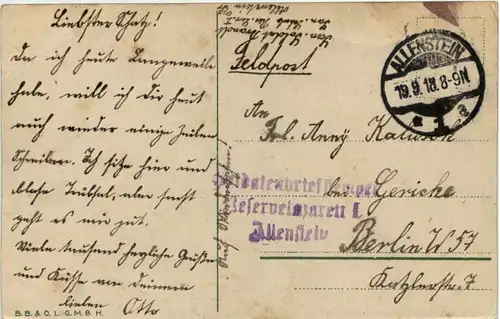 Liebster Schatz!
Da ich heute Langeweile
habe, will ich Dir heut
auch wieder einige Zeilen
schreiben. Ich sitze hier und
blase Trübsal, aber sonst
geht es mir gut.
Viele tausend herzliche Grüße
und Küsse von Deinem
lieben Otto
B. B. & O. L. G. M. B. H.
Auf Wiedersehen!
Feldpost
ALLENSTEIN
19.9.18.8-9N
* 1 a
An
Frl. Anny
bei Gericke
Soldatenbrief
Reservelazarett I
Allenstein
Berlin W 57
Katzlerstr. 7